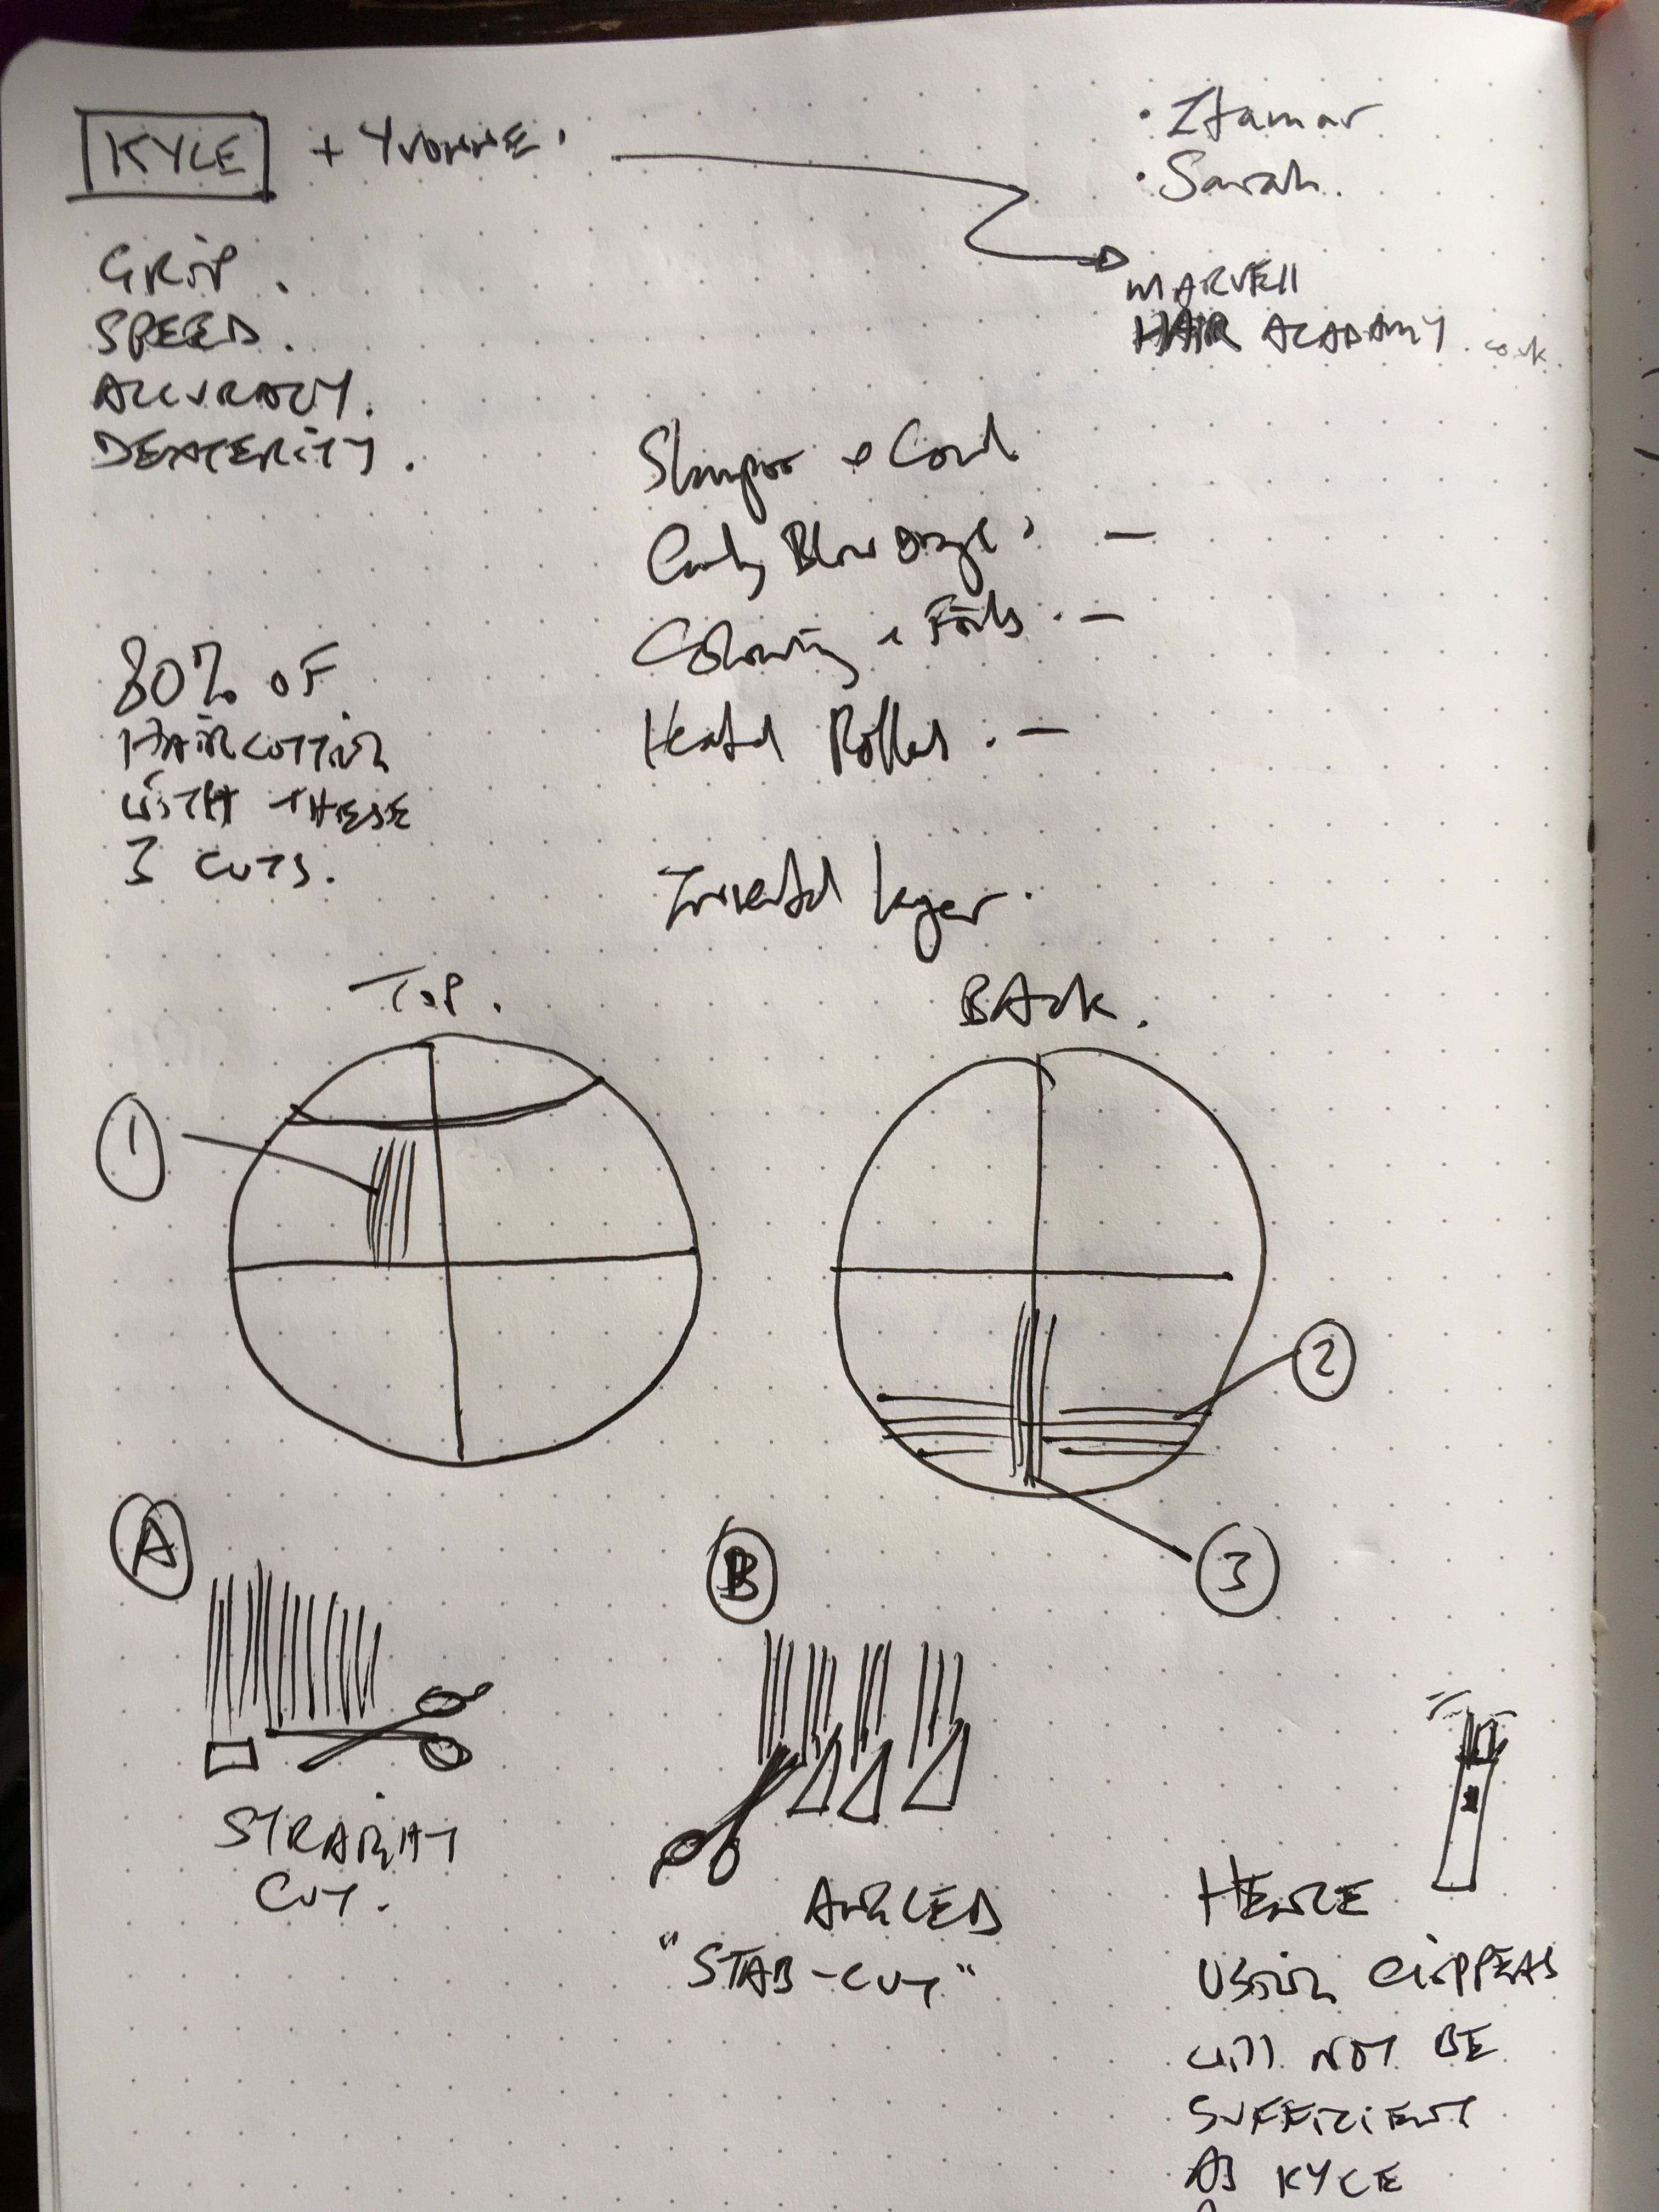 KYLE + YVONNE.
• Itamar
• Sarah.
MARVEll
HAIR ACADAMY .co.uk.
GRIP.
SPEED.
ACCURACY.
DEXTERITY.
Shampoo + Cond
Curly Blow Drys. —
Colouring + Foils. —
Heated Rollers. —
80% OF
HAIRCUTTING
WITH THESE
3 CUTS.
Inverted layer.
TOP.
BACK.
1
2
3
A
B
STRAIGHT
CUT.
ANGLED
"STAB-CUT"
HENCE
USING CLIPPERS
WILL NOT BE
SUFFICIENT
AS KYLE